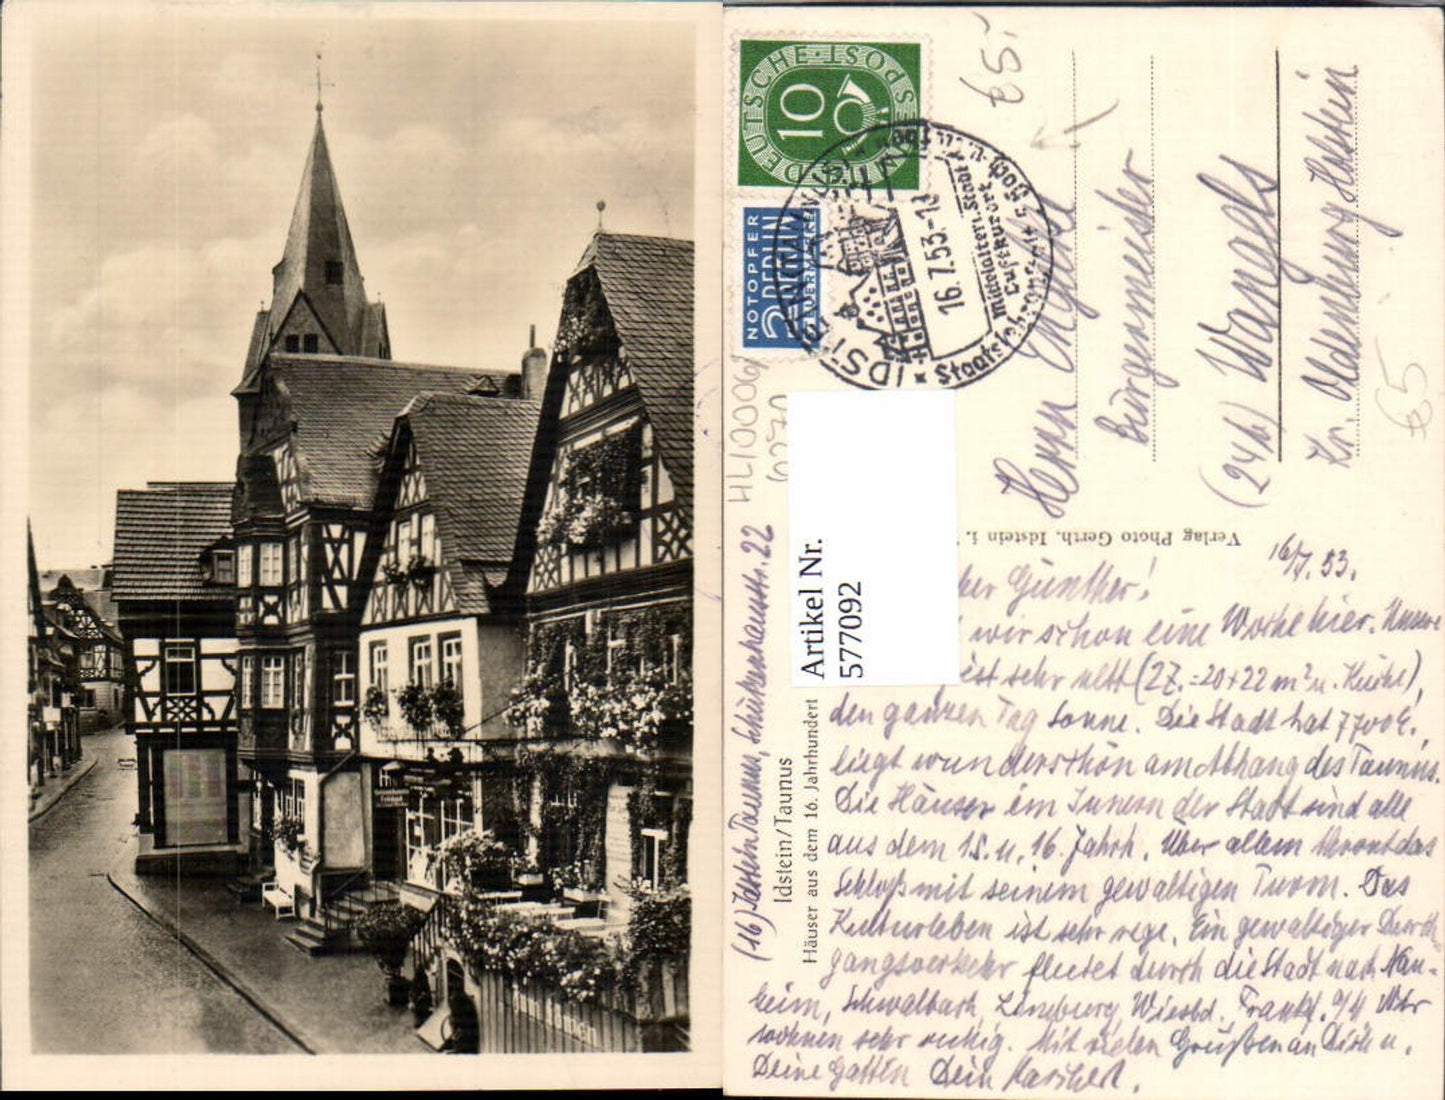 DEUTSCHE BUNDESPOST
10
NOTOPFER
2 BERLIN
STEUERMARKE
IDSTEIN
16.7.53-1
mittelalterl. Stadt
Luftkurort
Staatslehranst. f. Hoch- u.
€5.-
€5
Herrn
Bürgermeister
(24b) Wangels
Kr. Oldenburg Holstein
Verlag Photo Gerth, Idstein i.
HL10006
Artikel Nr.
577092
Idstein/Taunus
Häuser aus dem 16. Jahrhundert
(16) Idstein Taunus, Schützenhausstr. 22
16/7. 53.
Günther!
wir schon eine Woche hier. Unsere
ist sehr nett (2 Z. = 20 + 22 m² u. Küche),
den ganzen Tag Sonne. Die Stadt hat 7700 E.,
liegt wunderschön am Abhang des Taunus.
Die Häuser im Innern der Stadt sind alle
aus dem 15. u. 16. Jahrh. Über allem thront das
Schloß mit seinem gewaltigen Turm. Das
Kulturleben ist sehr rege. Ein gewaltiger Durch
gangsverkehr flutet durch die Stadt nach Nau-
heim, Schwalbach, Limburg, Wiesbd. Frankf. a/M Wir
wohnen sehr ruhig. Mit vielen Grüßen an Dich u.
Deine Gattin Dein